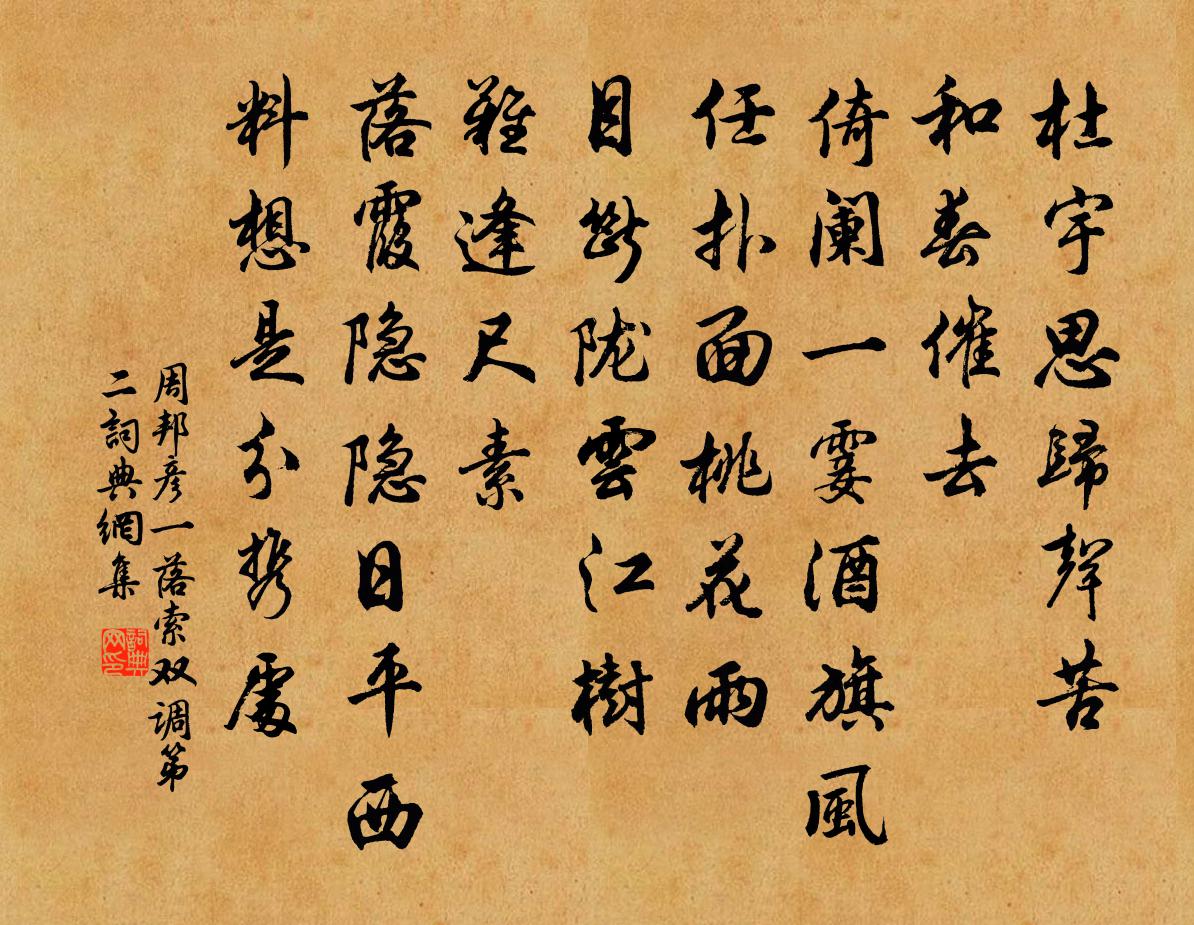 杜宇思歸聲苦
和春催去
倚阑一霎酒旗風
任扑面桃花雨
目斷陇雲江樹
難逢尺素
落霞隐隐日平西
料想是分携處
周邦彦一落索双调第
二詞典網集
詞典网印